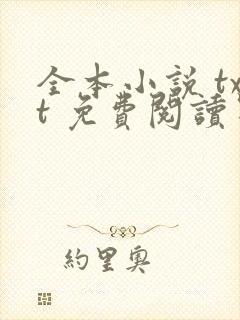 全本小說 tx
t 免費閱讀
約里奧